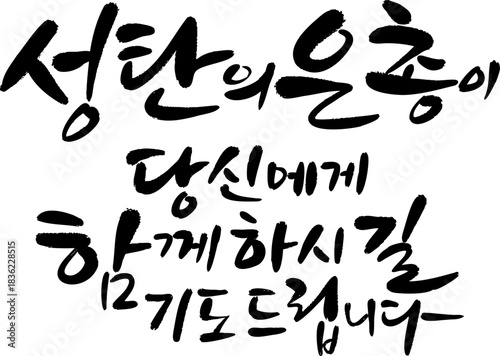 성탄의 은총이
당신에게
함께하시길
기도드립니다
Adobe Stock | #1836228515